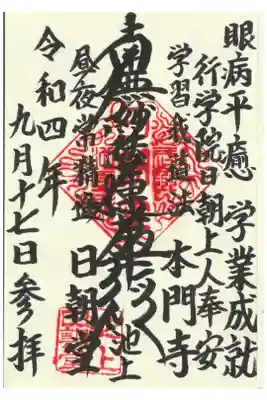 眼病平癒 学業成就
行学院日朝上人奉安
学習我道法 本門寺
池上
南無妙法蓮華経
昼夜常精進 日朝堂
令和四年
九月十七日 参拝